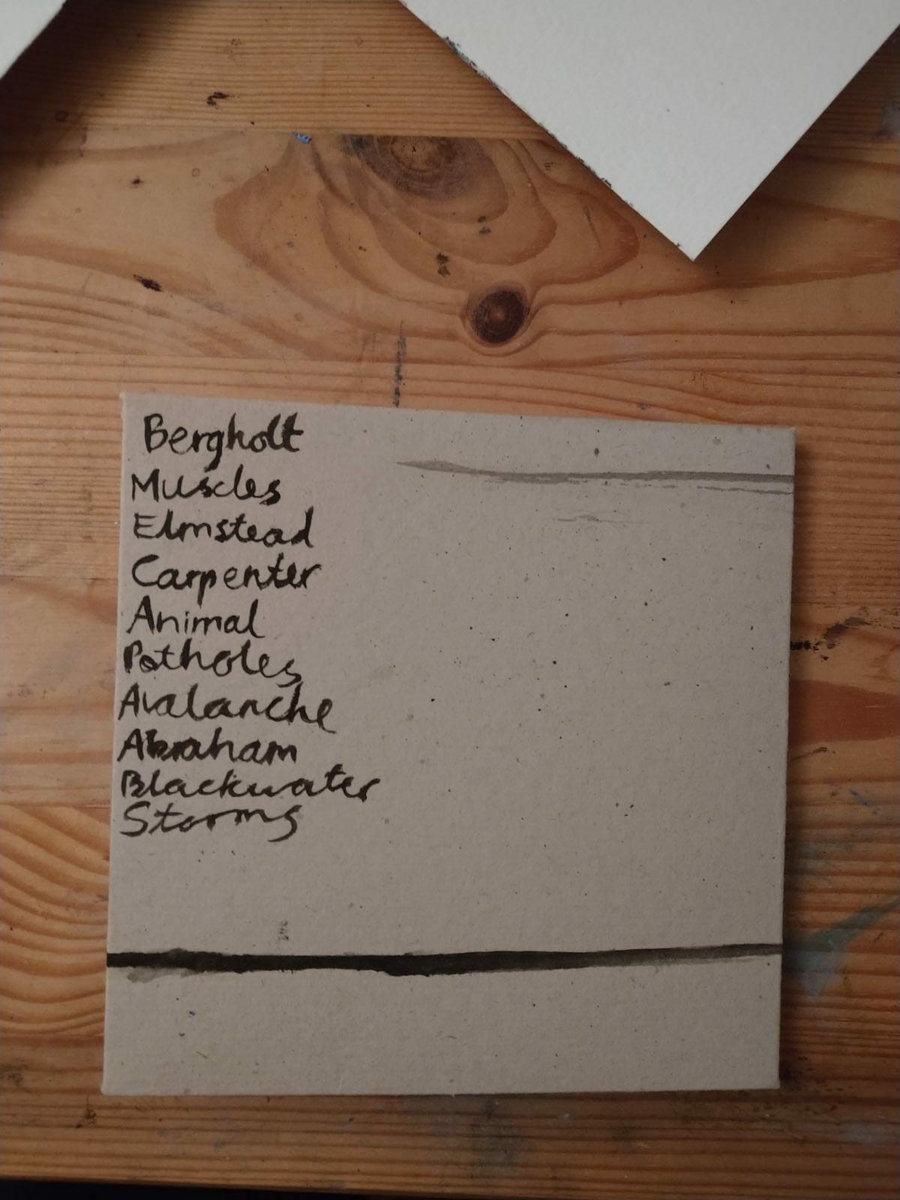 Bergholt
Muscles
Elmstead
Carpenter
Animal
Potholes
Avalanche
Abraham
Blackwater
Storms